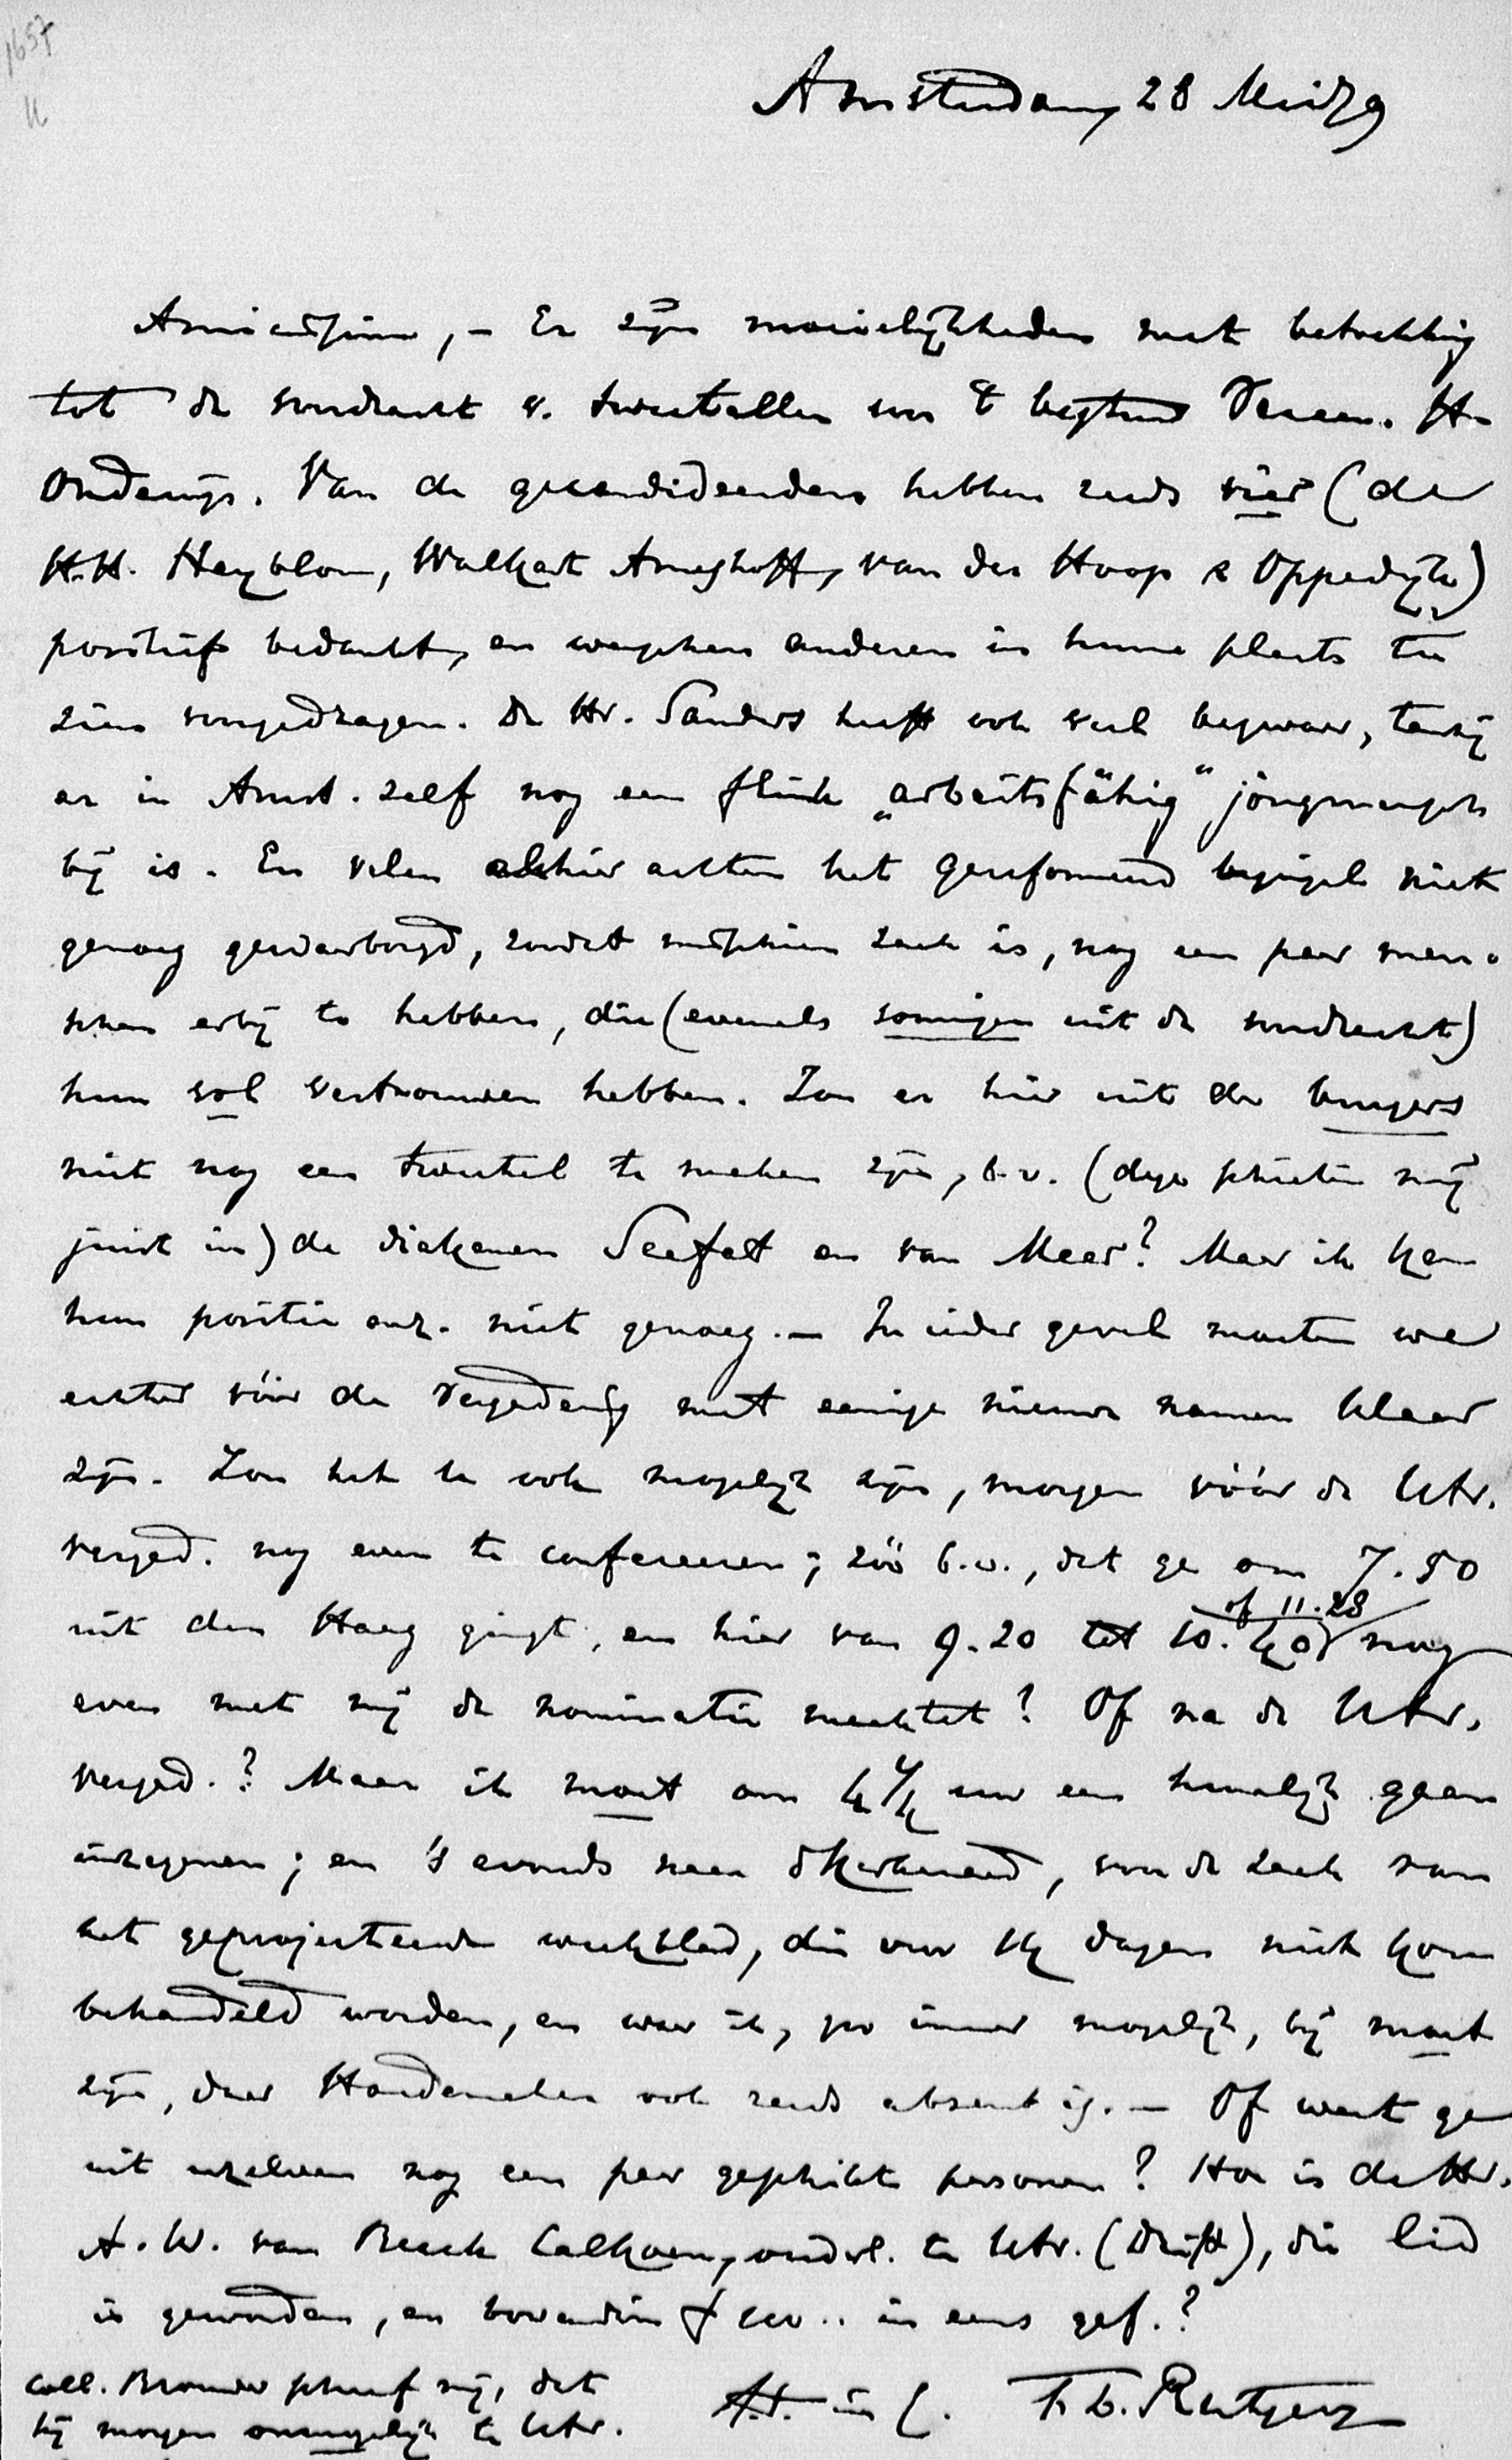 1657
Amsterdam, 28 Mei 79
Amicissime, – Er zijn moeielijkheden met betrekking
tot de voordracht v. tweetallen voor 't bestuur Vereen. H.
Onderwijs. Van de gecandideerden hebben reeds vier (de
H.H. Heyblom, Walkart Ameshoff, van der Hoop & Oppedijk)
positief bedankt, en wenschen anderen in hunne plaats te
zien voorgedragen. De Hr. Sanders heeft ook veel bezwaar, tenzij
er in Amst. zelf nog een flink „arbeitsfähig" jongmensch
bij is. En velen alhier achten het gereformeerd beginsel niet
genoeg gewaarborgd, zoodat misschien zaak is, nog een paar men-
schen erbij te hebben, die (evenals sommigen uit de voordracht)
hun vol vertrouwen hebben. Zou er hier uit de burgers
niet nog een tweetal te maken zijn, b.v. (deze schieten mij
juist in) de diakenen Seefat en van Meer? Maar ik ken
hun positie enz. niet genoeg. – In ieder geval moeten we
echter vóór de vergadering met eenige nieuwe namen klaar
zijn. Zou het u ook mogelijk zijn, morgen vóór de Utr.
vergad. nog even te confereeren; zóó b.v., dat ge om 7.50
uit den Haag gingt, en hier van 9.20 tot 10.40 nog
of 11.28
even met mij de nominatie maaktet? Of na de Utr.
vergad.? Maar ik moet om 4 1/2 uur een huwelijk gaan
inzegenen; en 's avonds naar d'Kerkeraad, voor de zaak van
het geprojecteerde weekblad, die voor 14 dagen niet kon
behandeld worden, en waar ik, zoo immer mogelijk, bij moet
zijn, daar Hardemeler ook reeds absent is. – Of weet ge
uit uzelven nog een paar geschikte personen? Hoe is de Hr.
A. W. van Beeck Calkoen, ouderl. te Utr. (Drift), die lid
is geworden, en bovendien in eens gef.?
Coll. Brouwer schreef mij, dat
hij morgen onmogelijk te Utr.
t.t. in C. F. L. Rutgers